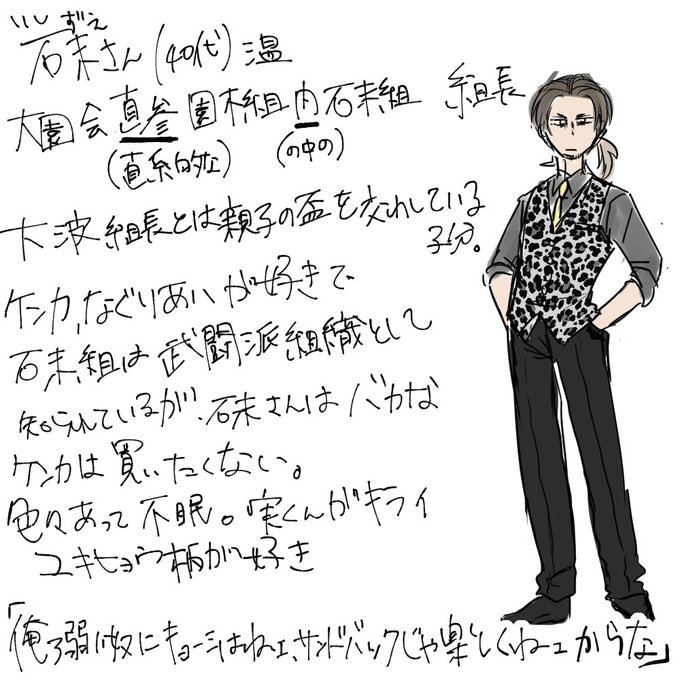 いしずえ
石末さん(40代)温
大園会直参園木組内石末組 組長
(直系的な) (の中の)
大波組長とは親子の盃を交わしている
子分。
ケンカ、なぐりあいが好きで
石末組は武闘派組織として
知られているが、石末さんはバカな
ケンカは買いたくない。
色々あって不眠。実くんがキライ
ユキヒョウ柄が好き
「俺ァ弱い奴にキョーミはねェ、サンドバックじゃ楽しくねーからな」